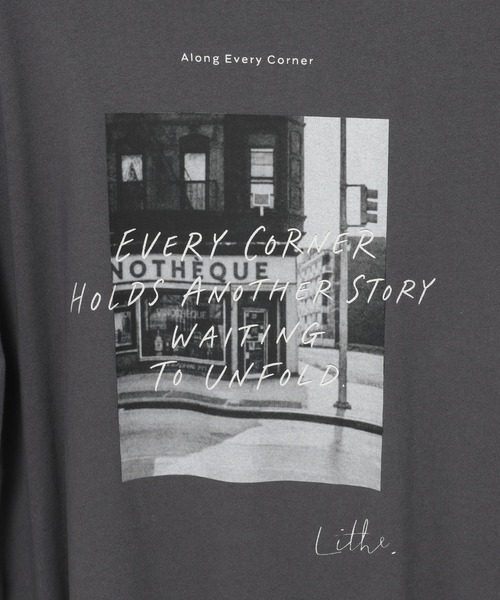 Along Every Corner
EVERY CORNER
NOTHEQUE
HOLDS ANOTHER STORY
NOTHEQUE
WAITING
TO UNFOLD.
Lithe.